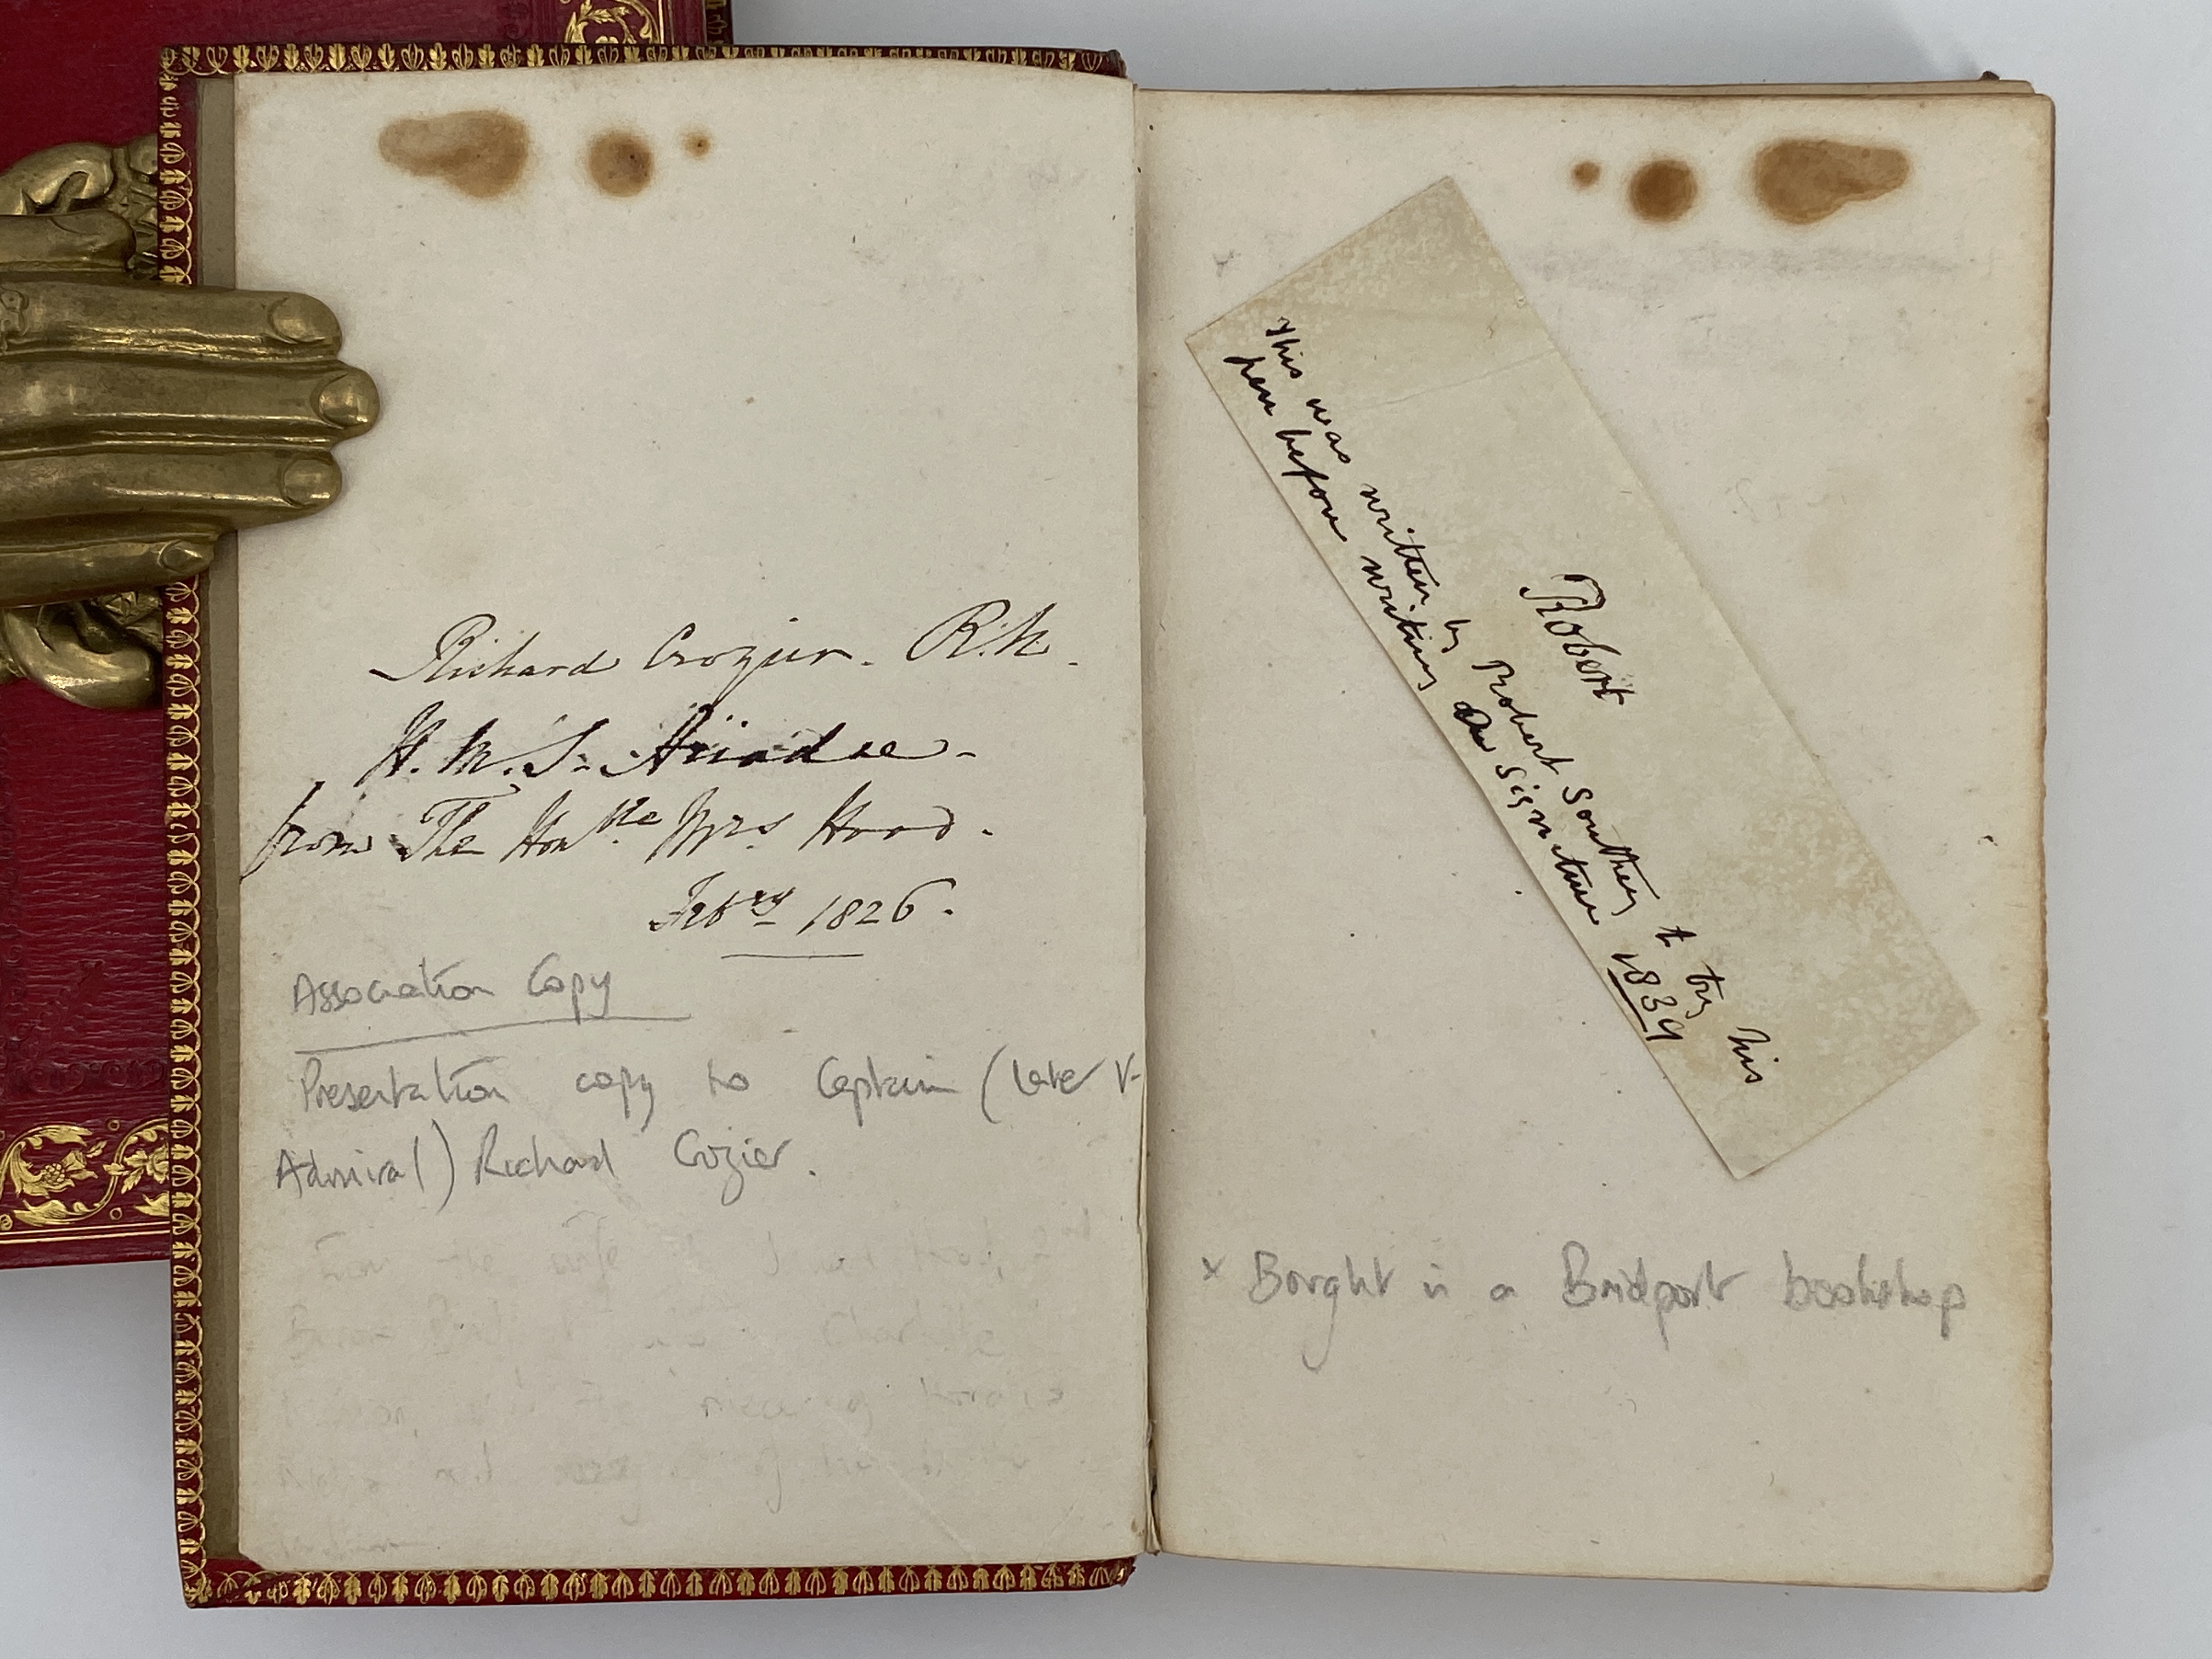 Richard Crozier. R.N.
H.M.S. Ariadne
from The Honble Mrs Hood.
Febry 1826.
Association Copy
Presentation copy to Captain (later V-
Admiral) Richard Crozier.
from the wife
niece of
Robert
This was written by Robert Southey to try his
pen before writing a signature 1839
x Bought in a Bridport bookshop